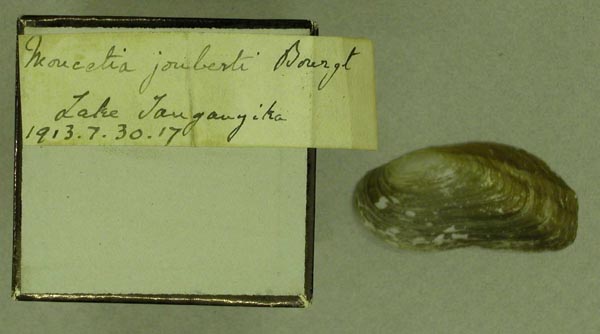 Moncetia jouberti Bourgt
Lake Tanganyika
1913.7.30.17